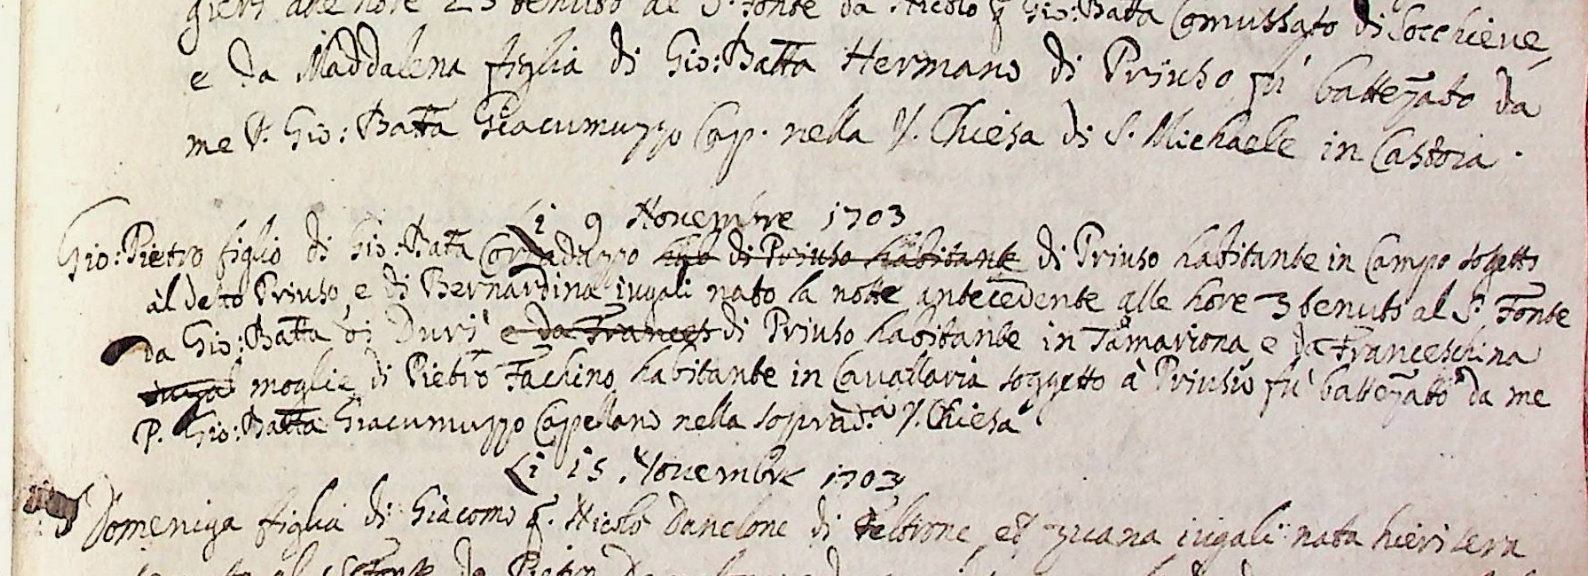 gieri alle hore 23 tenuto al S. Fonte da Nicolo q Gio: Batta Comussato di Socchieve,
e da Maddalena figlia di Gio: Batta Hermano di Priuso fu' battezato da
me P. Gio: Batta Giacumuzzo Cap. nella V. Chiesa di S. Michaele in Castoia.
Li 9 Novembre 1703
Gio: Pietro figlio di Gio: Batta Corradazzo hab di Priuso habitante di Priuso habitante in Campo sogetto
àl detto Priuso, e di Bernardina iugali nato la notte antecedente alle hore 3 tenuto al S. Fonte
da Gio: Batta di Duri' e da Frances di Priuso habitante in Tamariona, e da Franceschina
moglie di Pietro Fachino habitante in Cavallaria soggetto à Priuso fu' battezato da me
P. Gio: Batta Giacumuzzo Cappelano nella soprad.a V. Chiesa
Li 15 Novembre 1703
Domeniga figlia di Giacomo q. Nicolò Danelone di Feltrone, et Zuana iugali nata hieri sera
al S. Fonte da Pietro